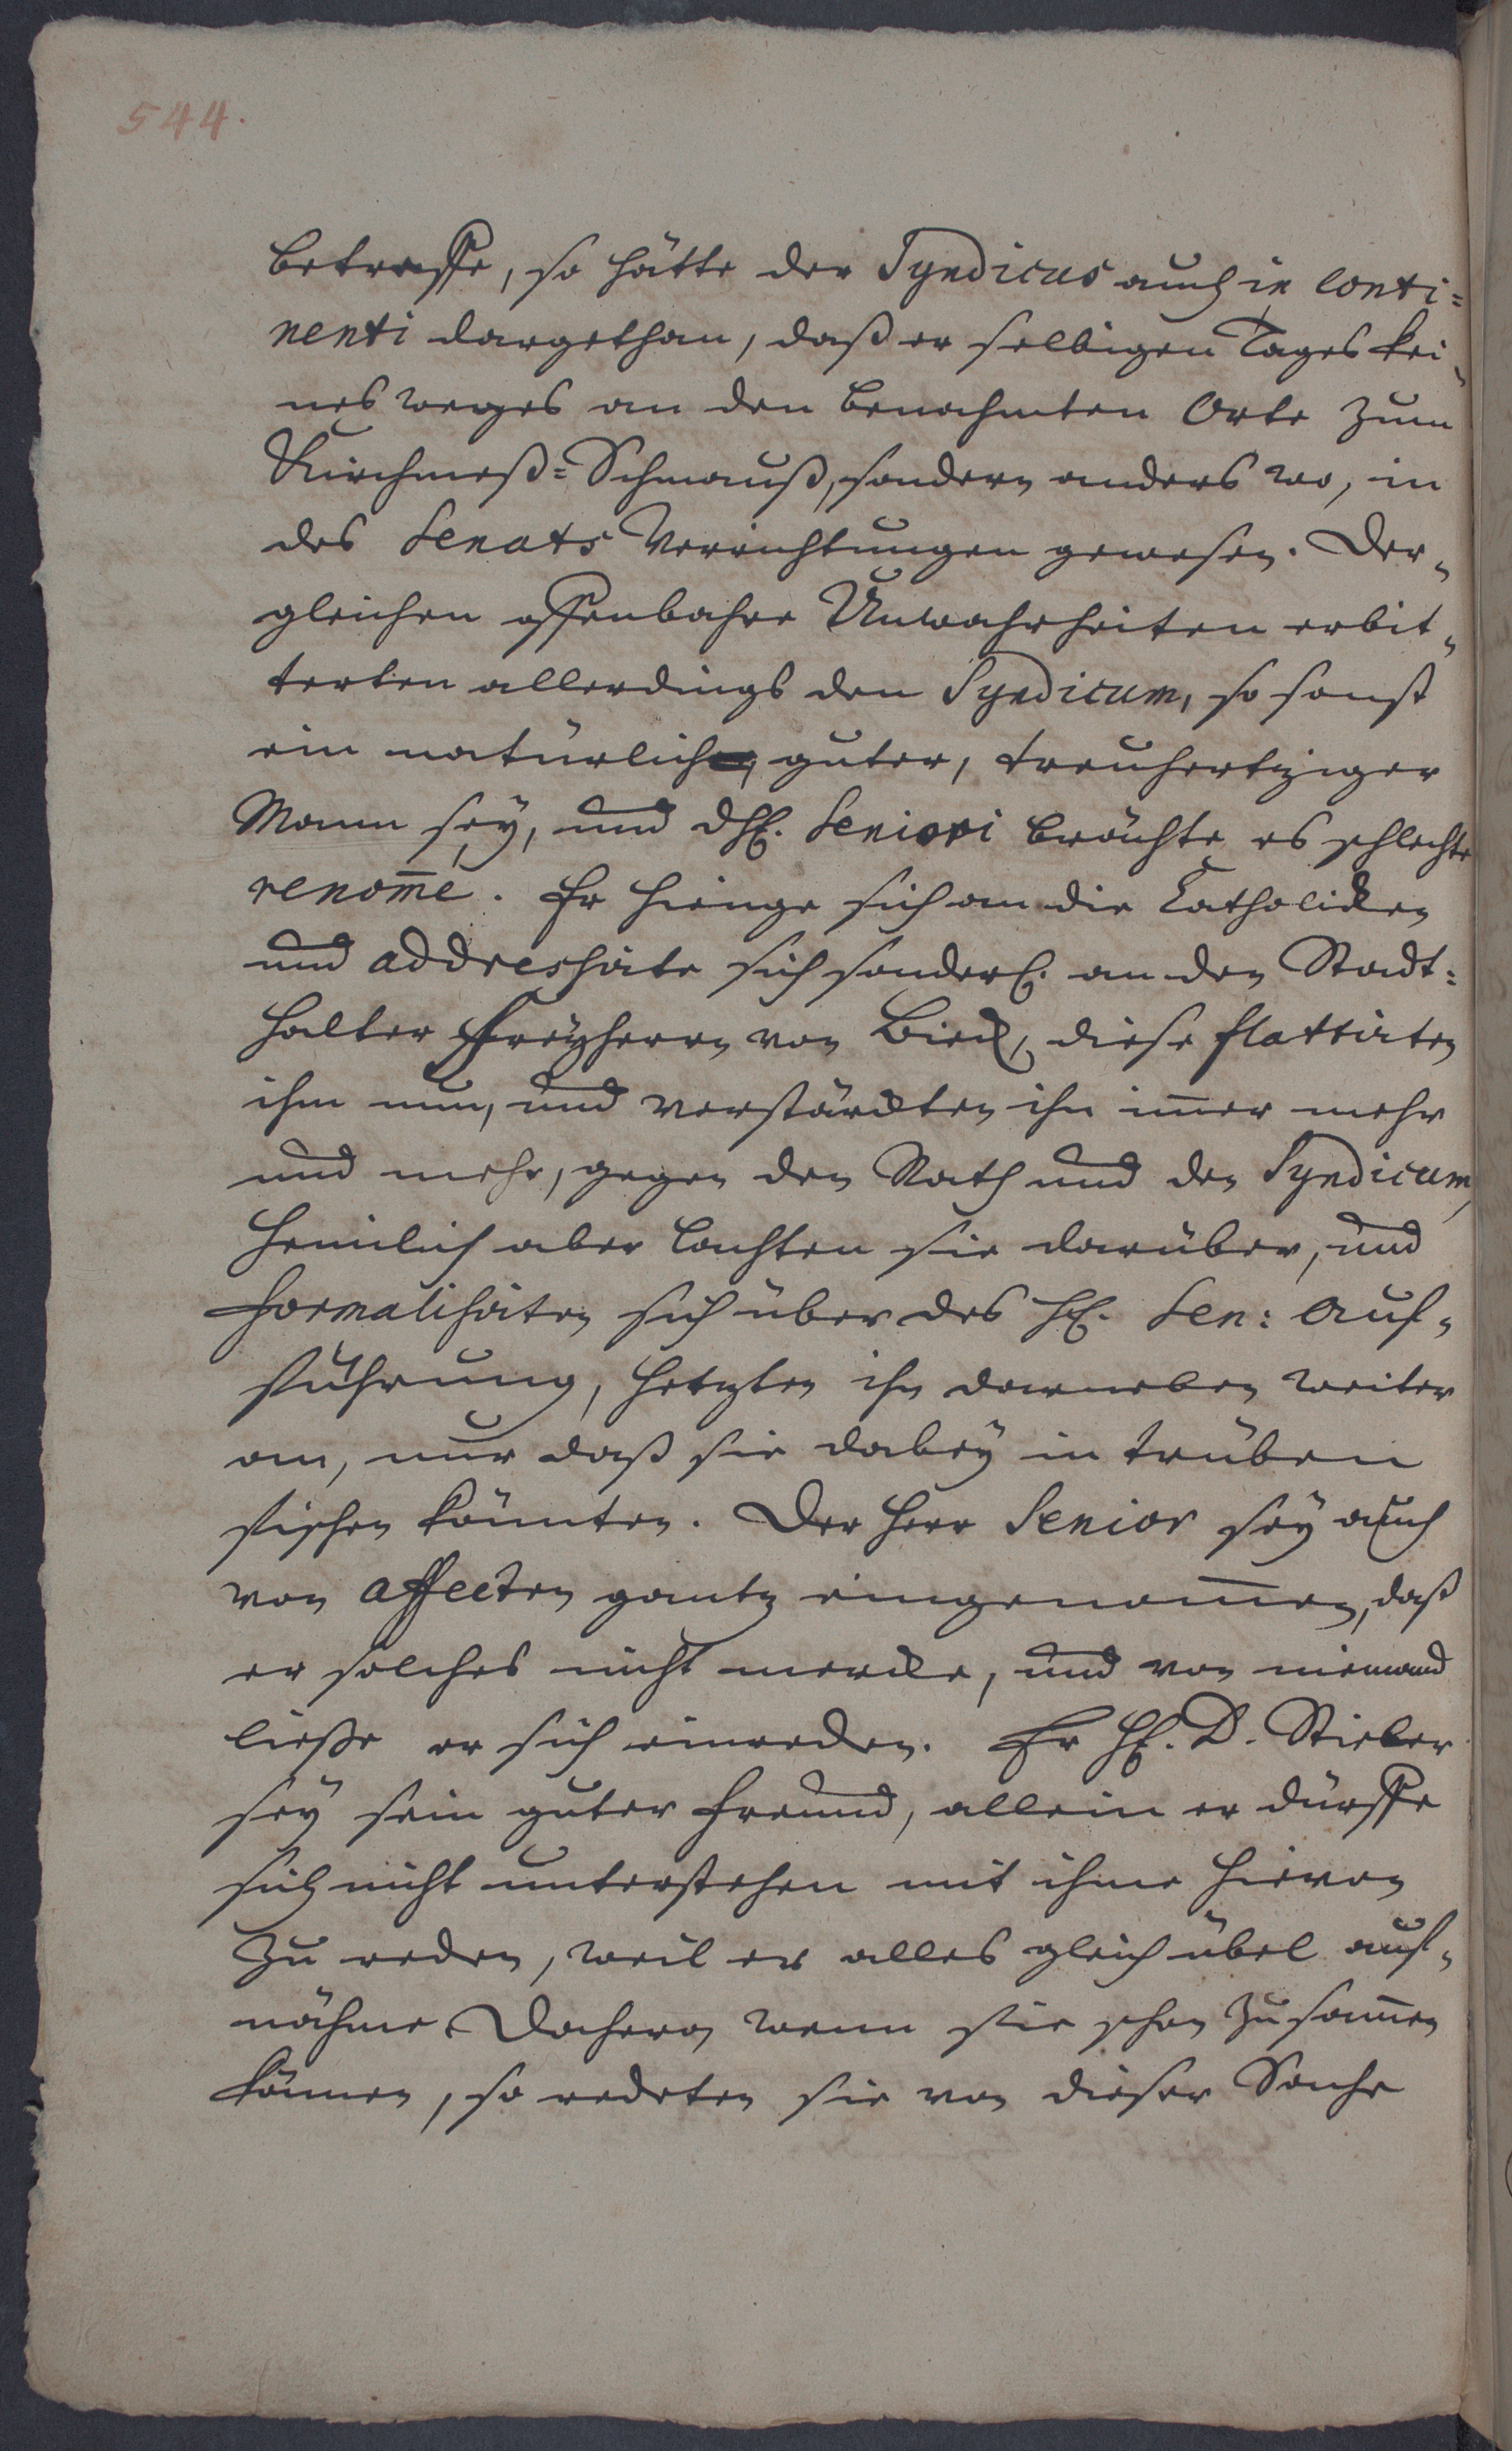 544.
betreffe, so hätte der Syndicus auch in conti=
nenti dargethan, daß er selbigen Tages kei„
nes weges an den benahmten Orte zum
Kirchmeß=Schmauß, sondern anders wo, in
des Senats Verrichtungen gewesen. Der„
gleichen offenbahre Unwahrheiten erbit„
terten allerdings den Syndicum, so sonst
ein natürlich guter, treuhertziger
Mann sey, und dH. Seniori brächte es schlechte
renom̄e. Er hienge sich an die Catholicken
und addressirte sich sonderl. an den Stadt=
halter Freyherrn von , diese flattirten
ihm nun, und verstärckten ihn im̄er mehr
und mehr, gegen den Rath und den Syndicum,
heimlich aber lachten sie darüber, und
formalisirten sich über des H. Sen: Auf„
führung, hetzten ihn darneben weiter
an, nur daß sie dabey in trüben
fischen könnten. Der Herr Senior sey auch
von affecten gantz eingenom̄en, daß
er solches nicht mercke, und von niemand
ließe er sich einreden. Er H. D. Stieler
sey sein guter Freund, allein er dürffe
sich nicht unterstehen mit ihme hievon
zu reden, weil er alles gleich übel auf„
nähme. Dahero, wenn sie schon zusam̄en
kämen, so redeten sie von dieser Sache